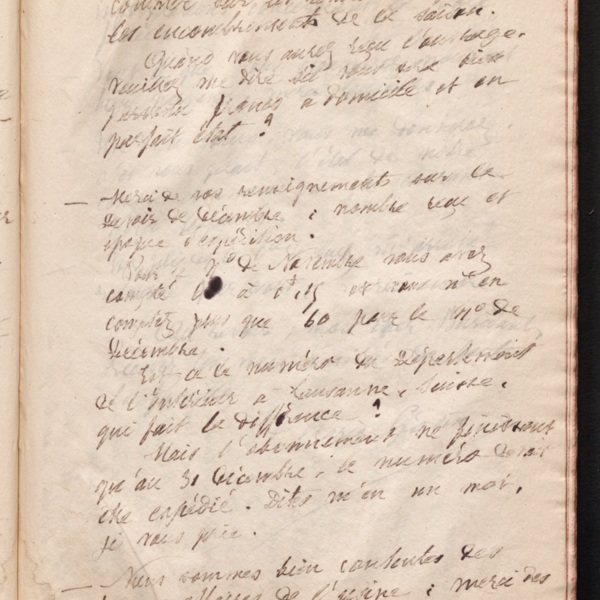 les encombrements de la saison.
Quand vous aurez reçu l'ouvrage,
veuillez me dire s'il vous
franco à domicile et en
parfait état ?
— Merci de vos renseignements sur le
Devoir de Décembre ; nombre reçu et
époque d'expédition.
Pour le No de Novembre vous avez
compté à 0f,15 et n'en
comptez plus que 60 pour le No de
Décembre.
Est-ce le numéro du Département
de l'Intérieur à Lausanne, Suisse,
qui fait la différence ?
Mais l'abonnement ne finissant
qu'au 31 Décembre, le numéro devait
être expédié. Dites m'en un mot,
je vous prie.
— Nous sommes bien contentes des
de l'usine ; merci des